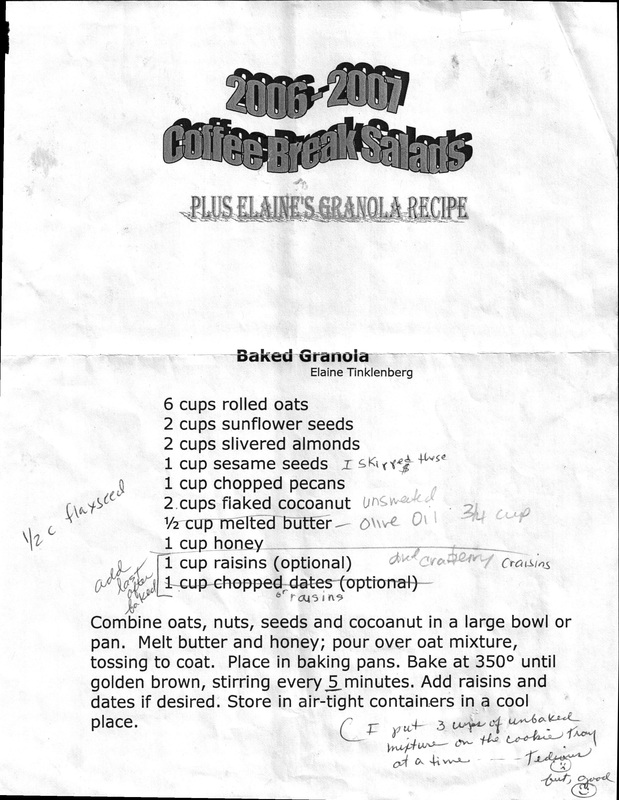 2006-2007
Coffee Break Salads
PLUS ELAINE'S GRANOLA RECIPE
Baked Granola
Elaine Tinklenberg
6 cups rolled oats
2 cups sunflower seeds
2 cups slivered almonds
1 cup sesame seeds I skipped these
1 cup chopped pecans
2 cups flaked cocoanut unsweated
½ cup melted butter – Olive Oil 3/4 cup
1/2 c flaxseed
1 cup honey
1 cup raisins (optional) dried cranberry craisins
1 cup chopped dates (optional)
or raisins
add
last
after
baked
Combine oats, nuts, seeds and cocoanut in a large bowl or
pan. Melt butter and honey; pour over oat mixture,
tossing to coat. Place in baking pans. Bake at 350° until
golden brown, stirring every 5 minutes. Add raisins and
dates if desired. Store in air-tight containers in a cool
place.
(I put 3 cups of unbaked
mixture on the cookie tray
at a time ---- Tedious
but, good